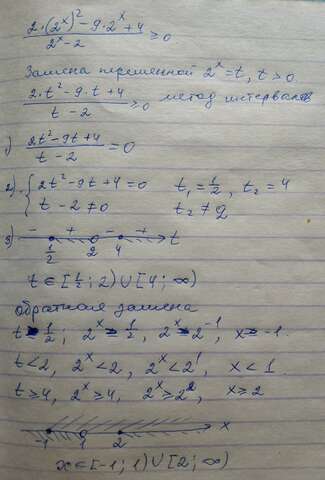 2·(2ˣ)² - 9·2ˣ + 4 / 2ˣ - 2 ≥ 0
Замена переменной 2ˣ = t, t > 0
2·t² - 9·t + 4 / t - 2 ≥ 0 метод интервалов
1) 2t² - 9t + 4 / t - 2 = 0
2) { 2t² - 9t + 4 = 0 t₁ = 1/2, t₂ = 4
t - 2 ≠ 0 t₂ ≠ 2
3) - + - + t
1/2 2 4
t ∈ [1/2; 2) ∪ [4; ∞)
обратная замена
t ≥ 1/2; 2ˣ ≥ 1/2, 2ˣ ≥ 2⁻¹, x ≥ -1.
t < 2, 2ˣ < 2, 2ˣ < 2¹, x < 1.
t ≥ 4, 2ˣ ≥ 4, 2ˣ ≥ 2², x ≥ 2
-1 1 2 x
x ∈ [-1; 1) ∪ [2; ∞)